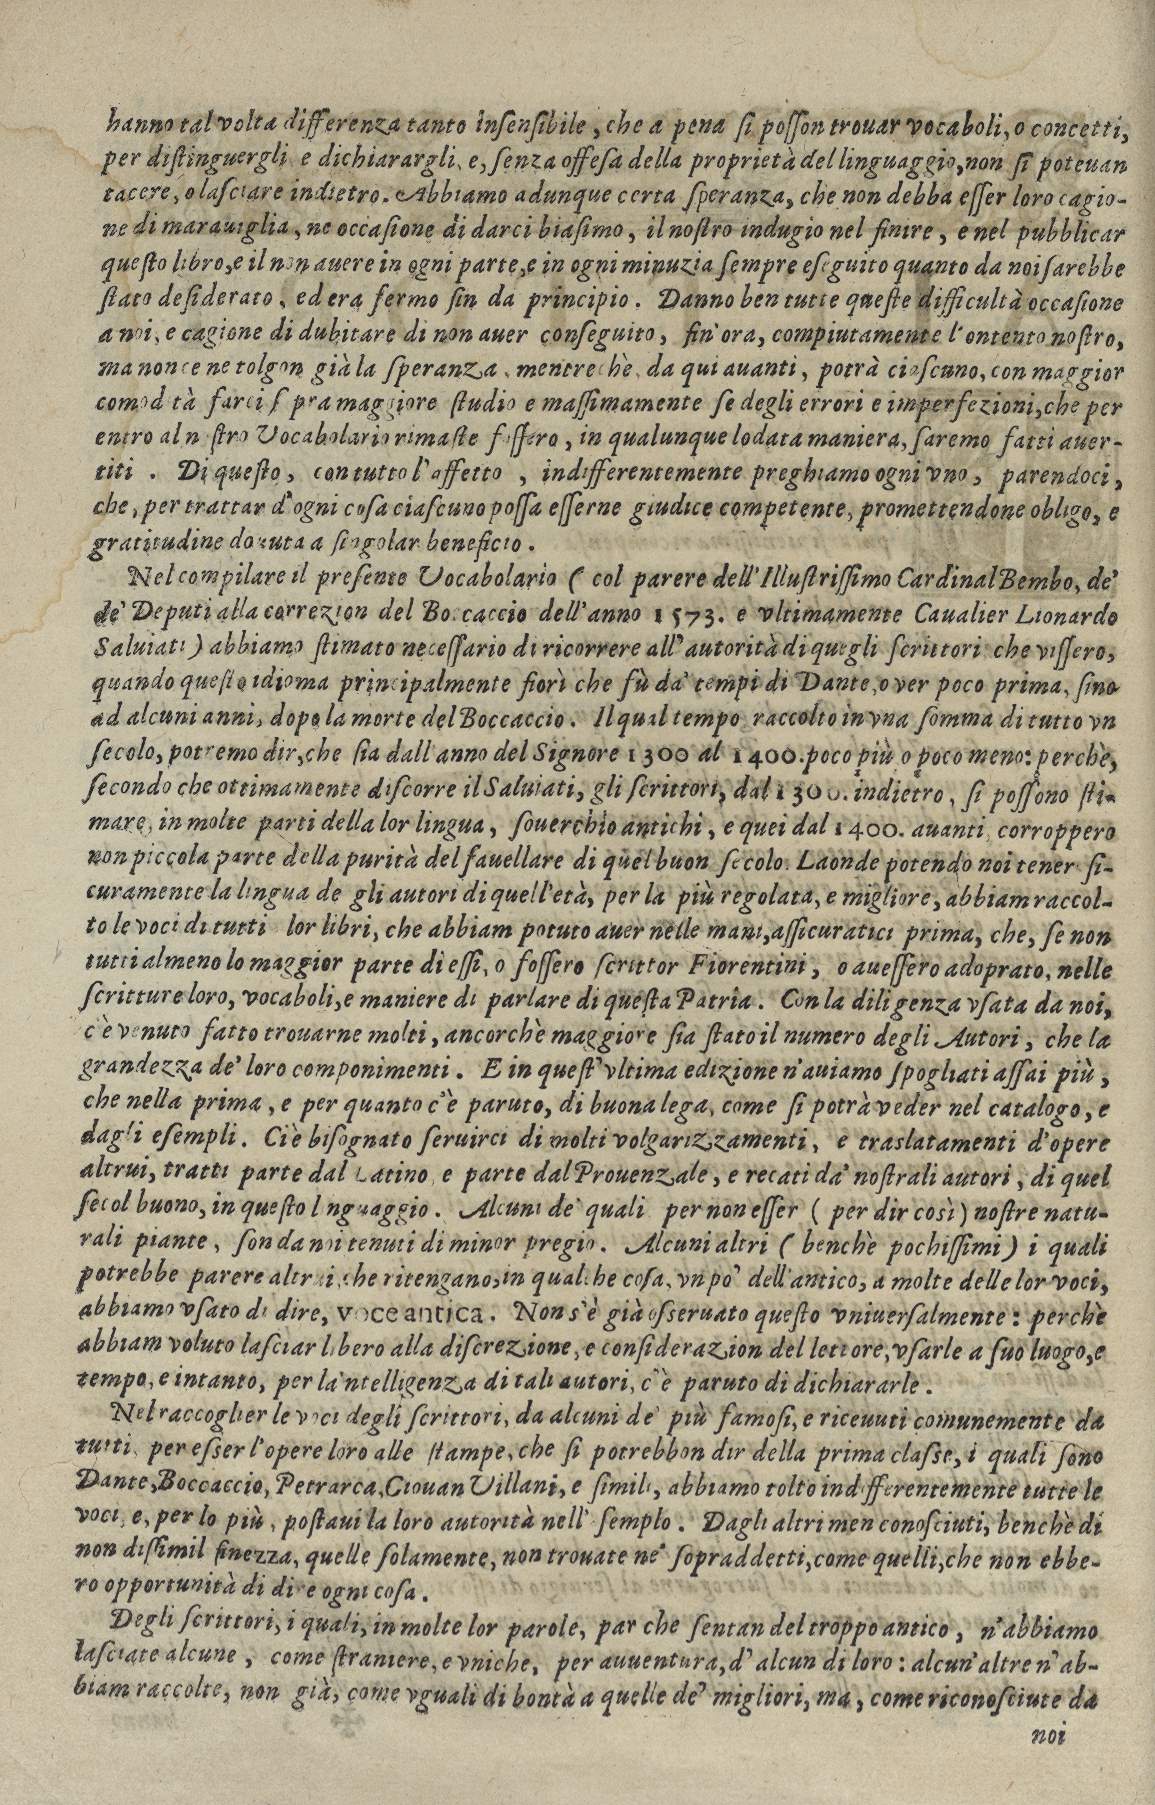 hanno tal volta differenza tanto insensibile, che a pena si posson trouar vocaboli, o concetti,
per distinguergli e dichiarargli, e, senza offesa della proprietà del linguaggio, non si poteuan
tacere, o lasciare indietro. Abbiamo adunque certa speranza, che non debba esser loro cagio-
ne di marauiglia, ne occasione di darci biasimo, il nostro indugio nel finire, e nel pubblicar
questo libro, e il non auere in ogni parte, e in ogni minuzia sempre eseguito quanto da noi sarebbe
stato desiderato, ed era fermo sin da principio. Danno ben tutte queste difficultà occasione
a noi, e cagione di dubitare di non auer conseguito, fin'ora, compiutamente l'ontento nostro,
ma non ce ne tolgon già la speranza, mentrechè, da qui auanti, potrà ciascuno, con maggior
comodità farci sopra maggiore studio e massimamente se degli errori e imperfezioni, che per
entro al nostro Vocabolario rimaste fossero, in qualunque lodata maniera, saremo fatti auer-
titi. Di questo, con tutto l'affetto, indifferentemente preghiamo ogni vno, parendoci,
che, per trattar d'ogni cosa ciascuno possa esserne giudice competente, promettendone obligo, e
gratitudine douuta a singolar beneficio.
Nel compilare il presente Vocabolario (col parere dell'Illustrissimo Cardinal Bembo, de'
de' Deputi alla correzion del Boccaccio dell'anno 1573. e vltimamente Caualier Lionardo
Saluiati) abbiamo stimato necessario di ricorrere all'autorità di quegli scrittori che vissero,
quando questo idioma principalmente fiorì che fù da' tempi di Dante, o ver poco prima, sino
ad alcuni anni, dopo la morte del Boccaccio. Il qual tempo raccolto in vna somma di tutto vn
secolo, potremo dir, che sia dall'anno del Signore 1300 al 1400. poco più o poco meno: perchè,
secondo che ottimamente discorre il Saluiati, gli scrittori, dal 1300. indietro, si possono sti-
mare, in molte parti della lor lingua, souerchio antichi, e quei dal 1400. auanti, corroppero
non piccola parte della purità del fauellare di quel buon secolo. Laonde potendo noi tener si-
curamente la lingua de gli autori di quell'età, per la più regolata, e migliore, abbiam raccol-
to le voci di tutti lor libri, che abbiam potuto auer nelle mani, assicuratici prima, che, se non
tutti almeno lo maggior parte di essi, o fossero scrittor Fiorentini, o auessero adoprato, nelle
scritture loro, vocaboli, e maniere di parlare di questa Patria. Con la diligenza vsata da noi,
c'è venuto fatto trouarne molti, ancorchè maggiore sia stato il numero degli Autori, che la
grandezza de' loro componimenti. E in quest'vltima edizione n'auiamo spogliati assai più,
che nella prima, e per quanto c'è paruto, di buona lega, come si potrà veder nel catalogo, e
dagli esempli. Ciè bisognato seruirci di molti volgarizzamenti, e traslatamenti d'opere
altrui, tratti parte dal Latino, e parte dal Prouenzale, e recati da' nostrali autori, di quel
secol buono, in questo linguaggio. Alcuni de' quali per non esser (per dir così) nostre natu-
rali piante, son da noi tenuti di minor pregio. Alcuni altri (benchè pochissimi) i quali
potrebbe parere altrui, che ritengano, in qualche cosa, vn pò dell'antico, a molte delle lor voci,
abbiamo vsato di dire, voce antica. Non s'è già osseruato questo vniuersalmente: perchè
abbiam voluto lasciar libero alla discrezione, e considerazion del lettore, vsarle a suo luogo, e
tempo, e intanto, per la'ntelligenza di tali autori, c'è paruto di dichiararle.
Nel raccoglier le voci degli scrittori, da alcuni de' più famosi, e riceuuti comunemente da
tutti, per esser l'opere loro alle stampe, che si potrebbon dir della prima classe, i quali sono
Dante, Boccaccio, Petrarca, Giouan Uillani, e simili, abbiamo tolto indifferentemente tutte le
voci, e, per lo più, postaui la loro autorità nell'esemplo. Dagli altri men conosciuti, benchè di
non dissimil finezza, quelle solamente, non trouate ne' sopraddetti, come quelli, che non ebbe-
ro opportunità di dire ogni cosa.
Degli scrittori, i quali, in molte lor parole, par che sentan del troppo antico, n'abbiamo
lasciate alcune, come straniere, e vniche, per auuentura, d'alcun di loro: alcun'altre n'ab-
biam raccolte, non già, come vguali di bontà a quelle de' migliori, ma, come riconosciute da
noi